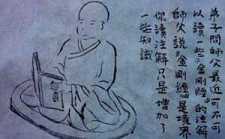 弟子問師父最近可不可
以讀一些金剛經的注解
師父說金剛經是境界
你讀注解只是增加了
一些知識